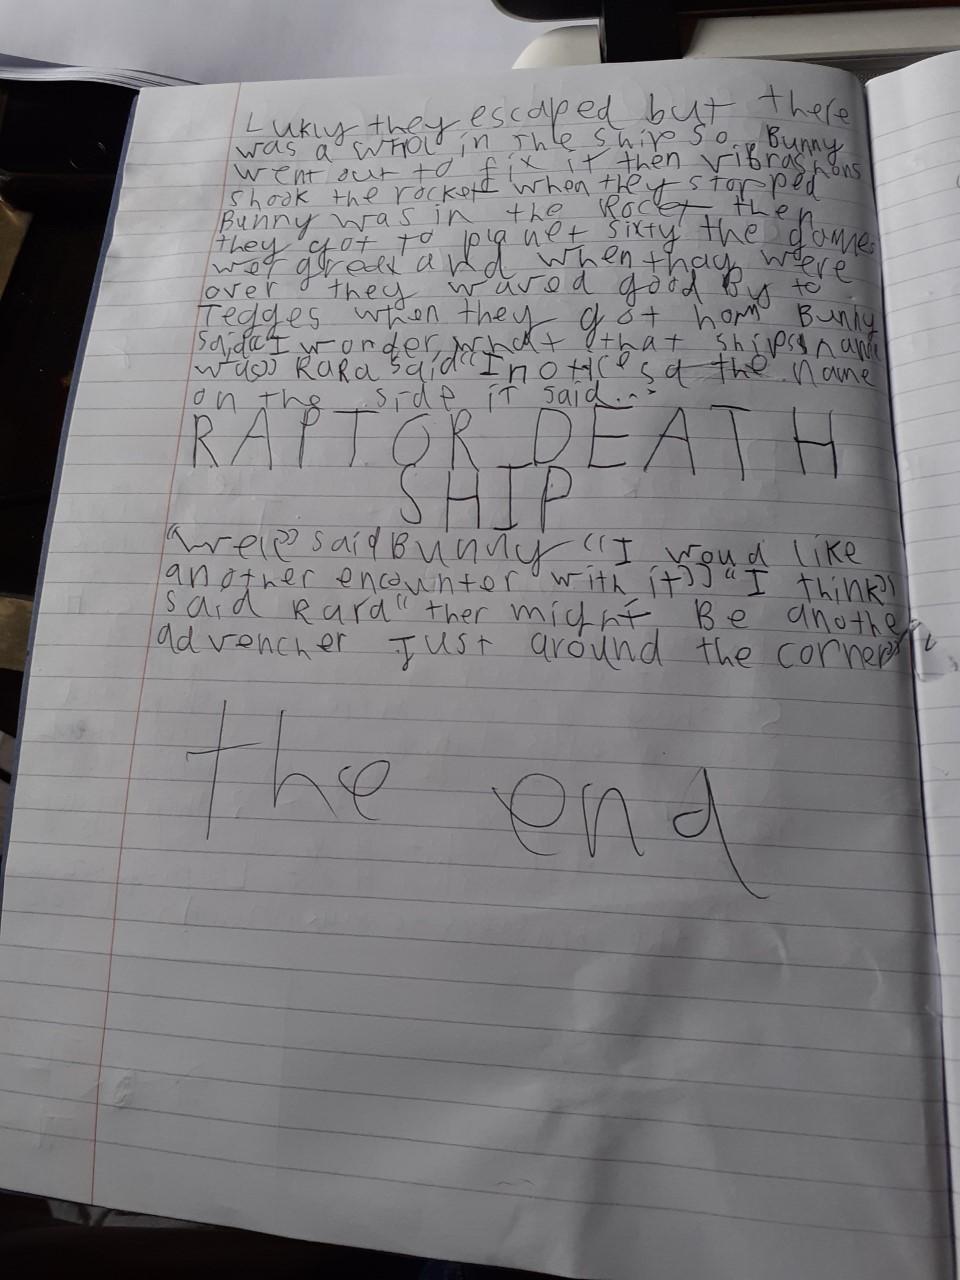 Lukly they escaped but there
was a whol in the ship so Bunny
went out to fix it then vibrashons
shook the rocket when they stopped
Bunny was in the Rocet then
they got to planet sixty the games
wer great and when thay were
over they waved good By to
Tegges when they got hom Bunny
said "I wonder what that ships name
was" RaRa said "I noticesd the name
on the side it said...
RAPTOR DEATH
SHIP
"well" said Bunny "I woud like
another encounter with it" "I think"
said Rara "ther might Be anothe
advencher Just around the corner"
the end